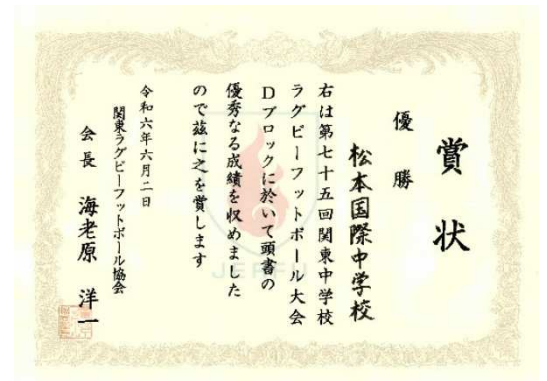 賞状
優勝
松本国際中学校
右は第七十五回関東中学校
ラグビーフットボール大会
Dブロックに於いて頭書の
優秀なる成績を収めました
ので茲に之を賞します
令和六年六月二日
関東ラグビーフットボール協会
会長 海老原 洋一